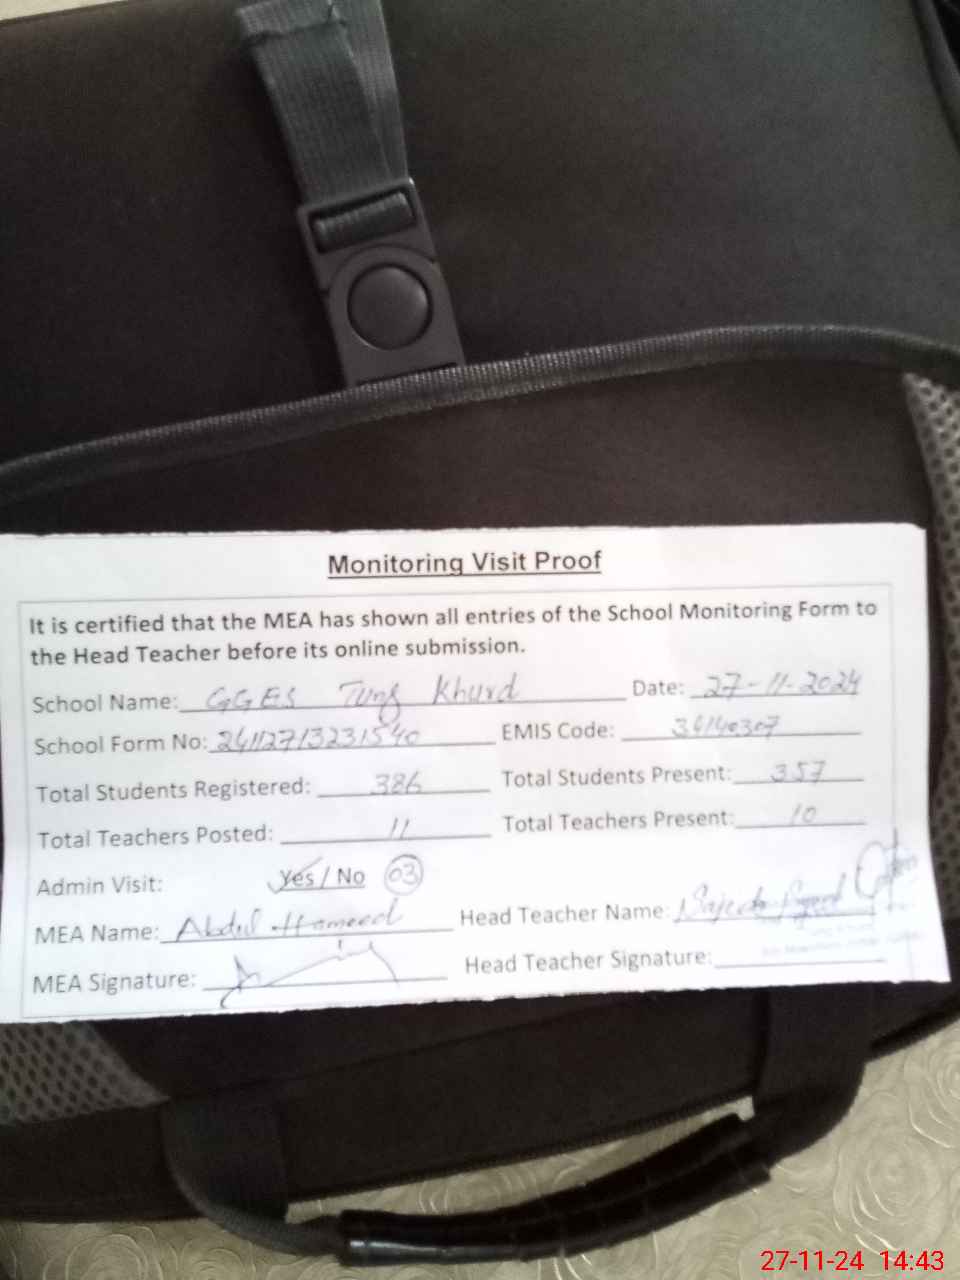 Monitoring Visit Proof
It is certified that the MEA has shown all entries of the School Monitoring Form to
the Head Teacher before its online submission.
School Name: GGES Tung Khurd Date: 27-11-2024
School Form No: 24112713231540 EMIS Code: 34140307
Total Students Registered: 386 Total Students Present: 357
Total Teachers Posted: 11 Total Teachers Present: 10
Admin Visit: Yes / No 03
MEA Name: Abdul Hameed Head Teacher Name: Sajeda
MEA Signature: Head Teacher Signature:
27-11-24 14:43